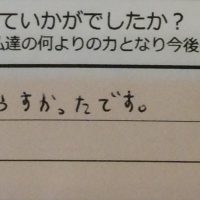 ていかがでしたか？
私達の何よりの力となり今後
すかったです。